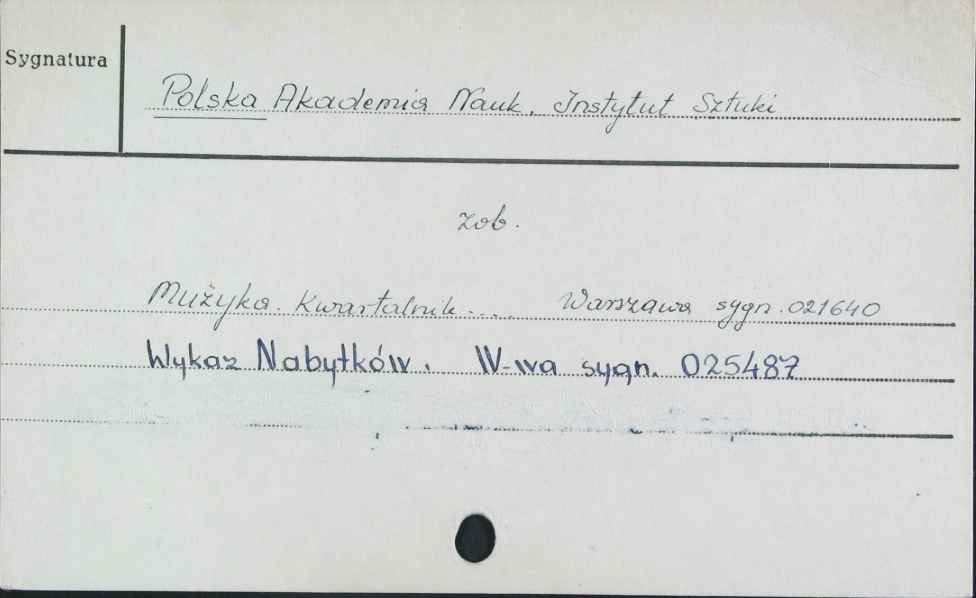 Sygnatura
Polska Akademia Nauk, Instytut Sztuki
zob.
Mużyka. Kwartalnik .... Warszawa sygn. 021640
Wykaz Nabytków. W-wa sygn. 025487